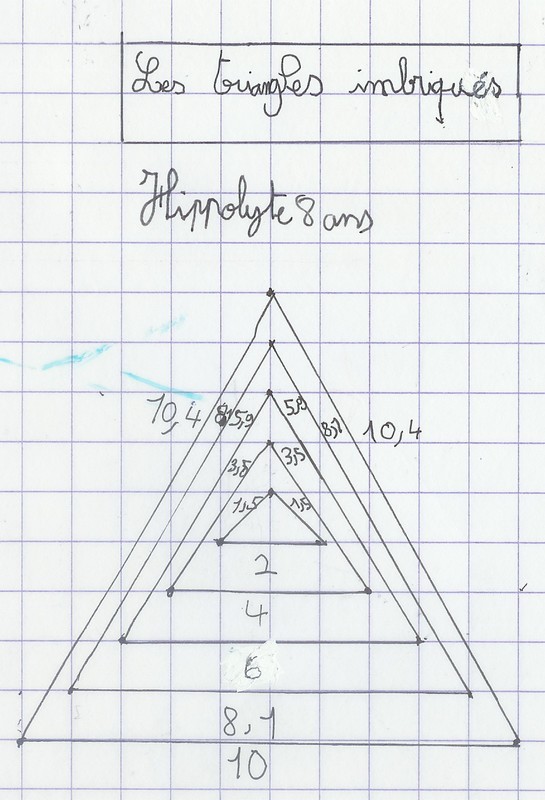 Les triangles imbriqués
Hippolyte 8 ans
10,4 5,9 5,9 10,4
3,5 3,5
1,5 1,5
2
4
6
8,1
10